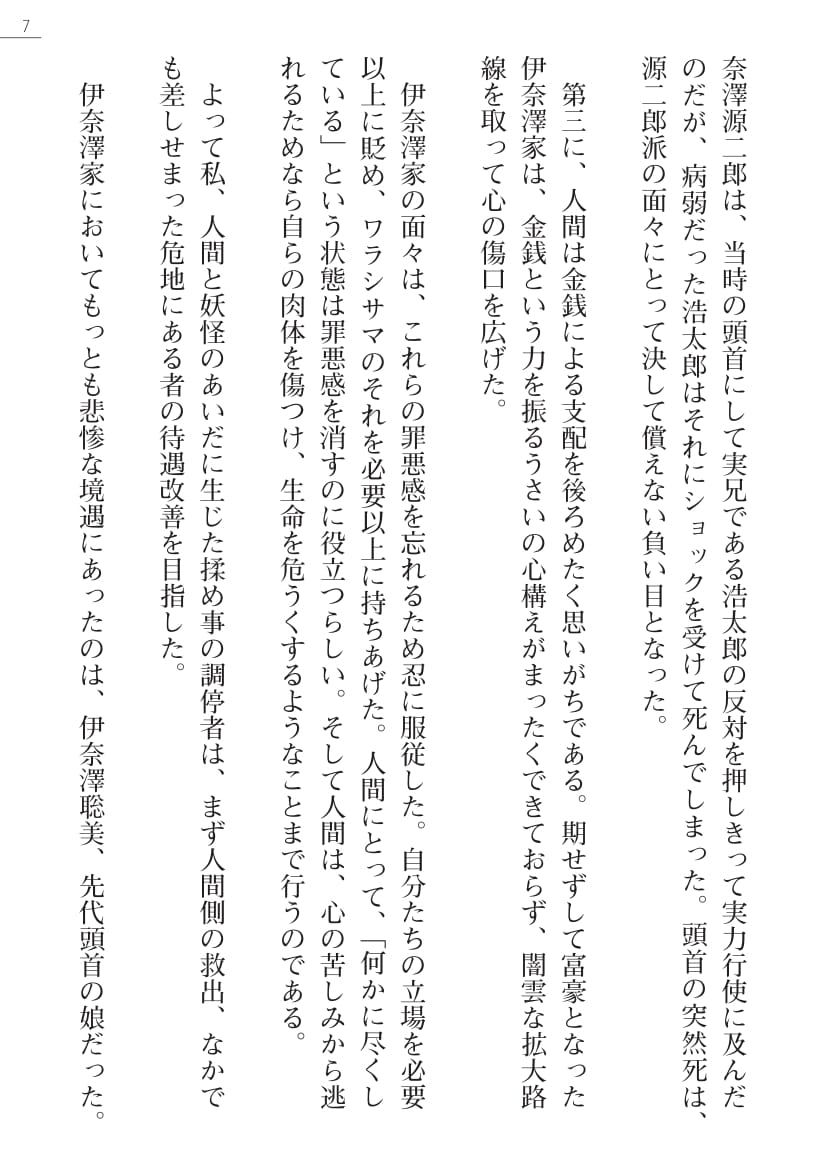 7
奈澤源二郎は、当時の頭首にして実兄である浩太郎の反対を押しきって実力行使に及んだ
のだが、病弱だった浩太郎はそれにショックを受けて死んでしまった。頭首の突然死は、
源二郎派の面々にとって決して償えない負い目となった。
第三に、人間は金銭による支配を後ろめたく思いがちである。期せずして富豪となった
伊奈澤家は、金銭という力を振るうさいの心構えがまったくできておらず、闇雲な拡大路
線を取って心の傷口を広げた。
伊奈澤家の面々は、これらの罪悪感を忘れるため忍に服従した。自分たちの立場を必要
以上に貶め、ワラシサマのそれを必要以上に持ちあげた。人間にとって、「何かに尽くし
ている」という状態は罪悪感を消すのに役立つらしい。そして人間は、心の苦しみから逃
れるためなら自らの肉体を傷つけ、生命を危うくするようなことまで行うのである。
よって私、人間と妖怪のあいだに生じた揉め事の調停者は、まず人間側の救出、なかで
も差しせまった危地にある者の待遇改善を目指した。
伊奈澤家においてもっとも悲惨な境遇にあったのは、伊奈澤聡美、先代頭首の娘だった。